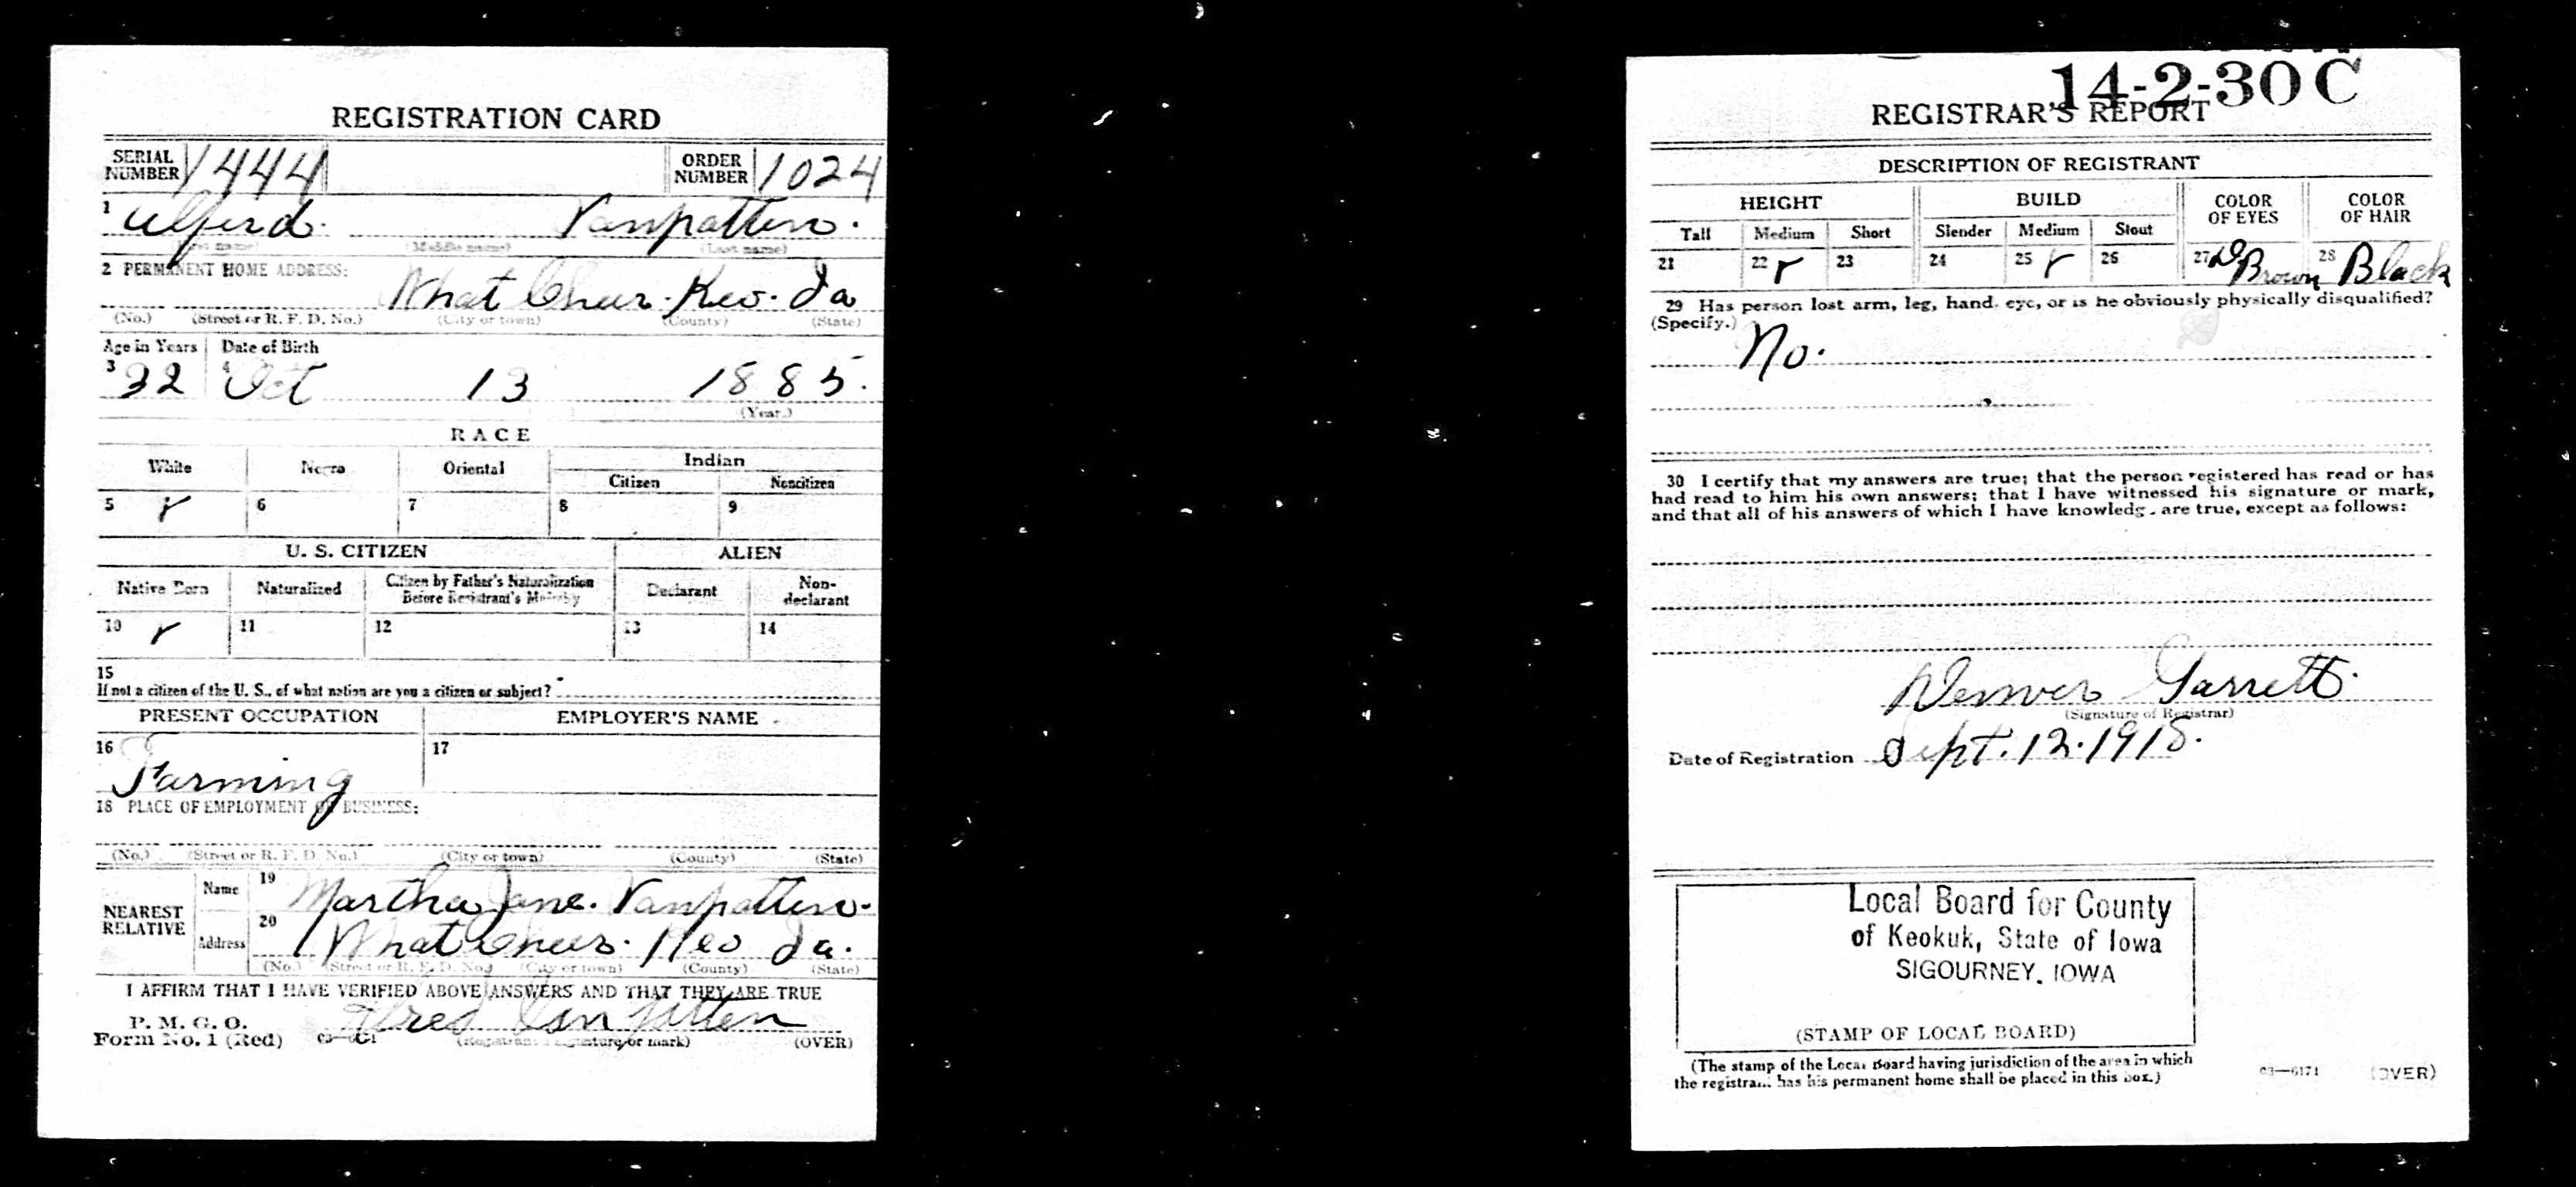 REGISTRATION CARD
SERIAL NUMBER 1444 ORDER NUMBER 1024
1 Alferd. Vanpatten.
(First name) (Middle name) (Last name)
2 PERMANENT HOME ADDRESS:
What Cheer. Keo. Ia
(No.) (Street or R. F. D. No.) (City or town) (County) (State)
Age in Years Date of Birth
3 32 4 Oct 13 1885.
(Year.)
RACE
White Negro Oriental Indian
Citizen Noncitizen
5 6 7 8 9
U. S. CITIZEN ALIEN
Native Born Naturalized Citizen by Father's Naturalization Before Registrant's Majority Declarant Non-declarant
10 11 12 13 14
15
If not a citizen of the U. S., of what nation are you a citizen or subject?
PRESENT OCCUPATION EMPLOYER'S NAME
16 Farming 17
18 PLACE OF EMPLOYMENT OR BUSINESS:
(No.) (Street or R. F. D. No.) (City or town) (County) (State)
NEAREST RELATIVE Name 19 Martha Jane. Vanpatten.
Address 20 What Cheer. Keo Ia.
(No.) (Street or R. F. D. No.) (City or town) (County) (State)
I AFFIRM THAT I HAVE VERIFIED ABOVE ANSWERS AND THAT THEY ARE TRUE
P. M. G. O.
Form No. 1 (Red) 03—6171 Van Patten (Registrant's signature or mark) (OVER)
14-2-30 C
REGISTRAR'S REPORT
DESCRIPTION OF REGISTRANT
HEIGHT BUILD COLOR OF EYES COLOR OF HAIR
Tall Medium Short Slender Medium Stout
21 22 23 24 25 26 27 D Brown 28 Black
29 Has person lost arm, leg, hand, eye, or is he obviously physically disqualified?
(Specify.)
No.
30 I certify that my answers are true; that the person registered has read or has
had read to him his own answers; that I have witnessed his signature or mark,
and that all of his answers of which I have knowledge are true, except as follows:
Denver Garrett.
(Signature of Registrar)
Date of Registration Sept. 12. 1918.
Local Board for County
of Keokuk, State of Iowa
SIGOURNEY, IOWA
(STAMP OF LOCAL BOARD)
(The stamp of the Local Board having jurisdiction of the area in which
the registrant has his permanent home shall be placed in this box.)
03—6171 (OVER)